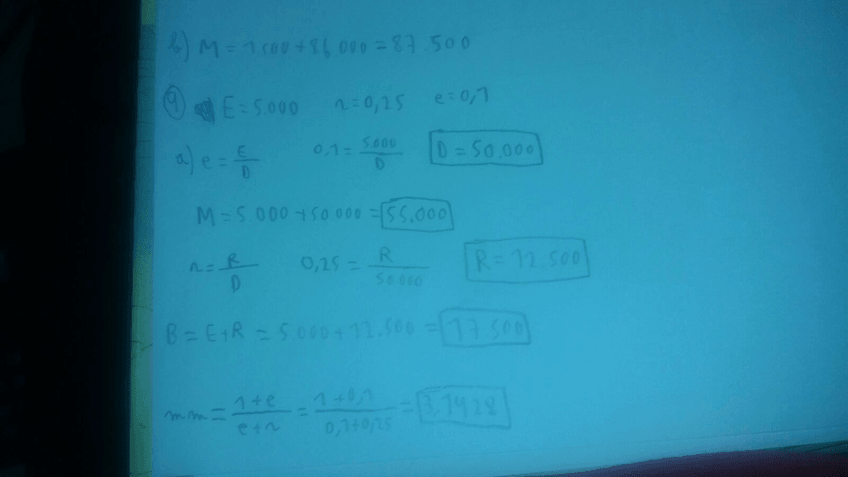 b) M = 1500 + 86 000 = 87.500
9 E = 5.000 r = 0,25 e = 0,1
a) e = E/D 0,1 = 5.000/D D = 50.000
M = 5.000 + 50.000 = 55.000
r = R/D 0,25 = R/50.000 R = 12.500
B = E + R = 5.000 + 12.500 = 17.500
mm = 1+e/e+r = 1+0,1/0,1+0,25 = 3,1428